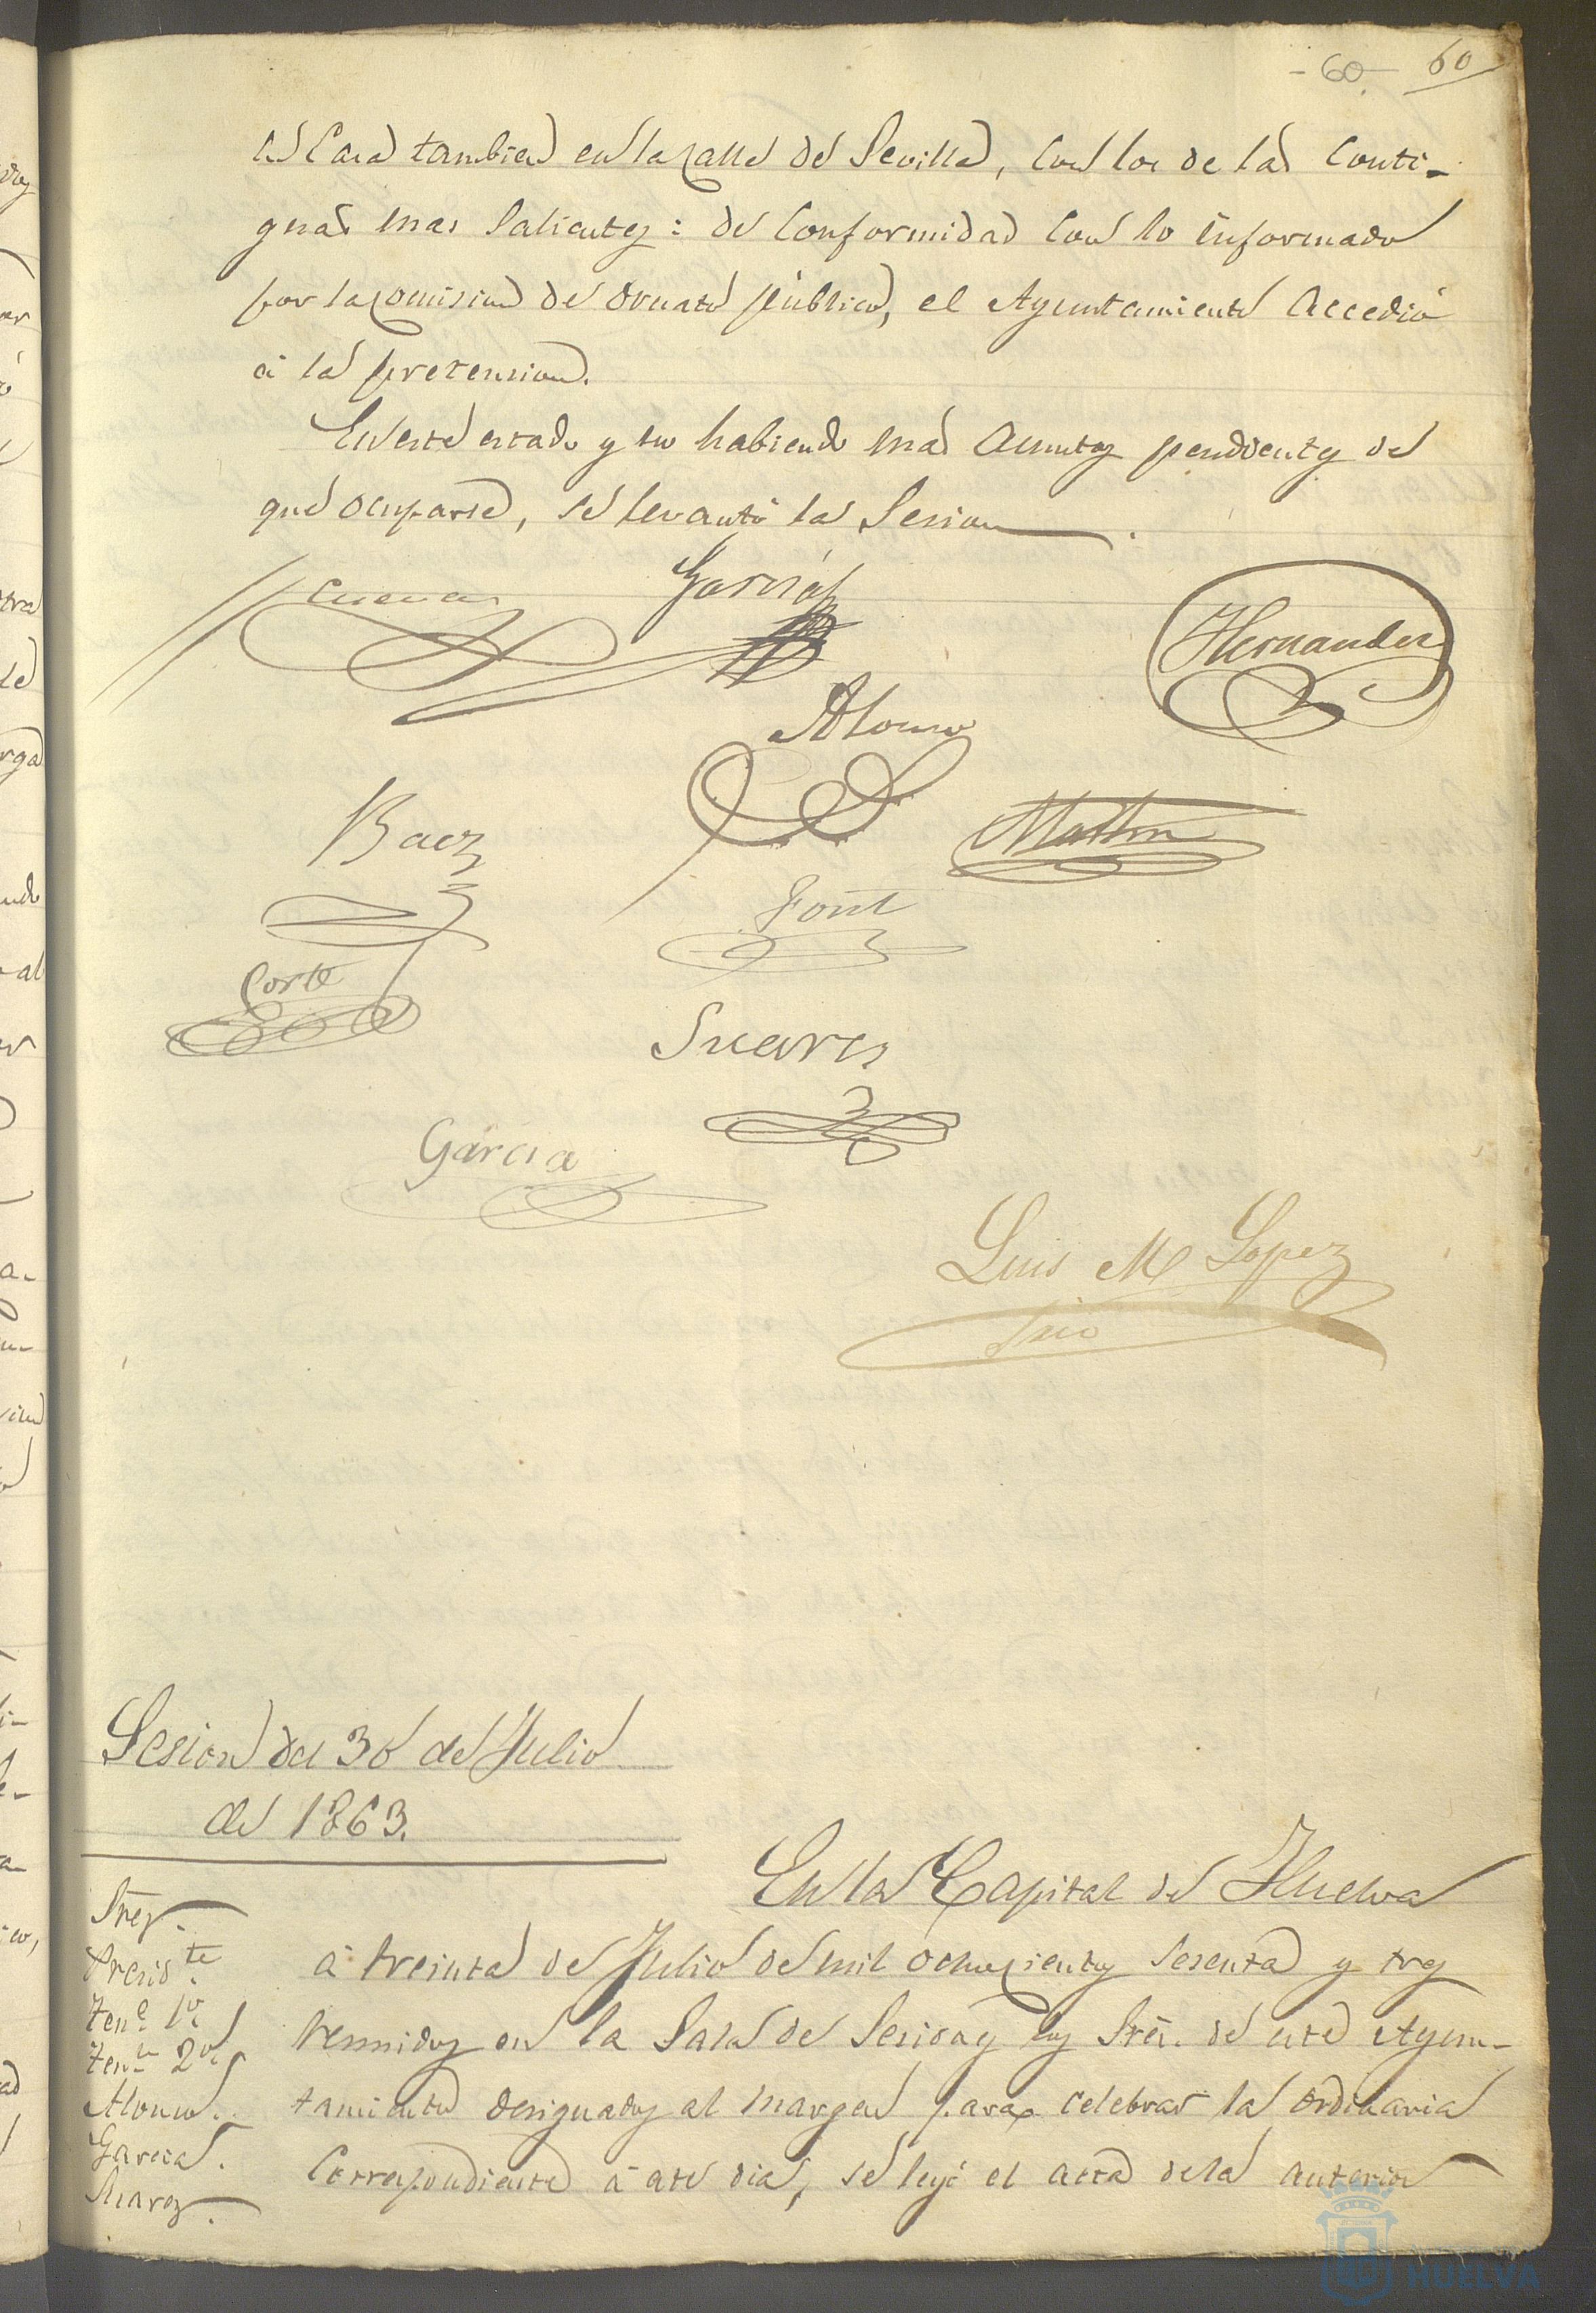 - 60 - 60
su Casa tambien en la calle de Sevilla, con los de las conti-
guas mas salientes: de conformidad con lo informado
por la comision de ornato público, el Ayuntamiento accedió
á la pretension.
En este estado y no habiendo mas asuntos pendientes de
que ocuparse, se levantó la Sesion.
Cuevas Garcia Hernandez
Alonso
Baez Martin
Font
Corte
Suarez
Garcia
Luis M Lopez
Srio
Sesion del 30 de Julio
de 1863.
En la Capital de Huelva
Sres.
á treinta de Julio de mil ochocientos sesenta y tres
Presid.te
reunidos en la Sala de Sesiones los Sres. de este Ayun-
Ten.e 1.o
Ten.e 2.o
tamiento designados al margen para celebrar la ordinaria
Alonso.
Garcia.
correspondiente á este dia, se leyó el acta de la anterior
Suarez.
HUELVA